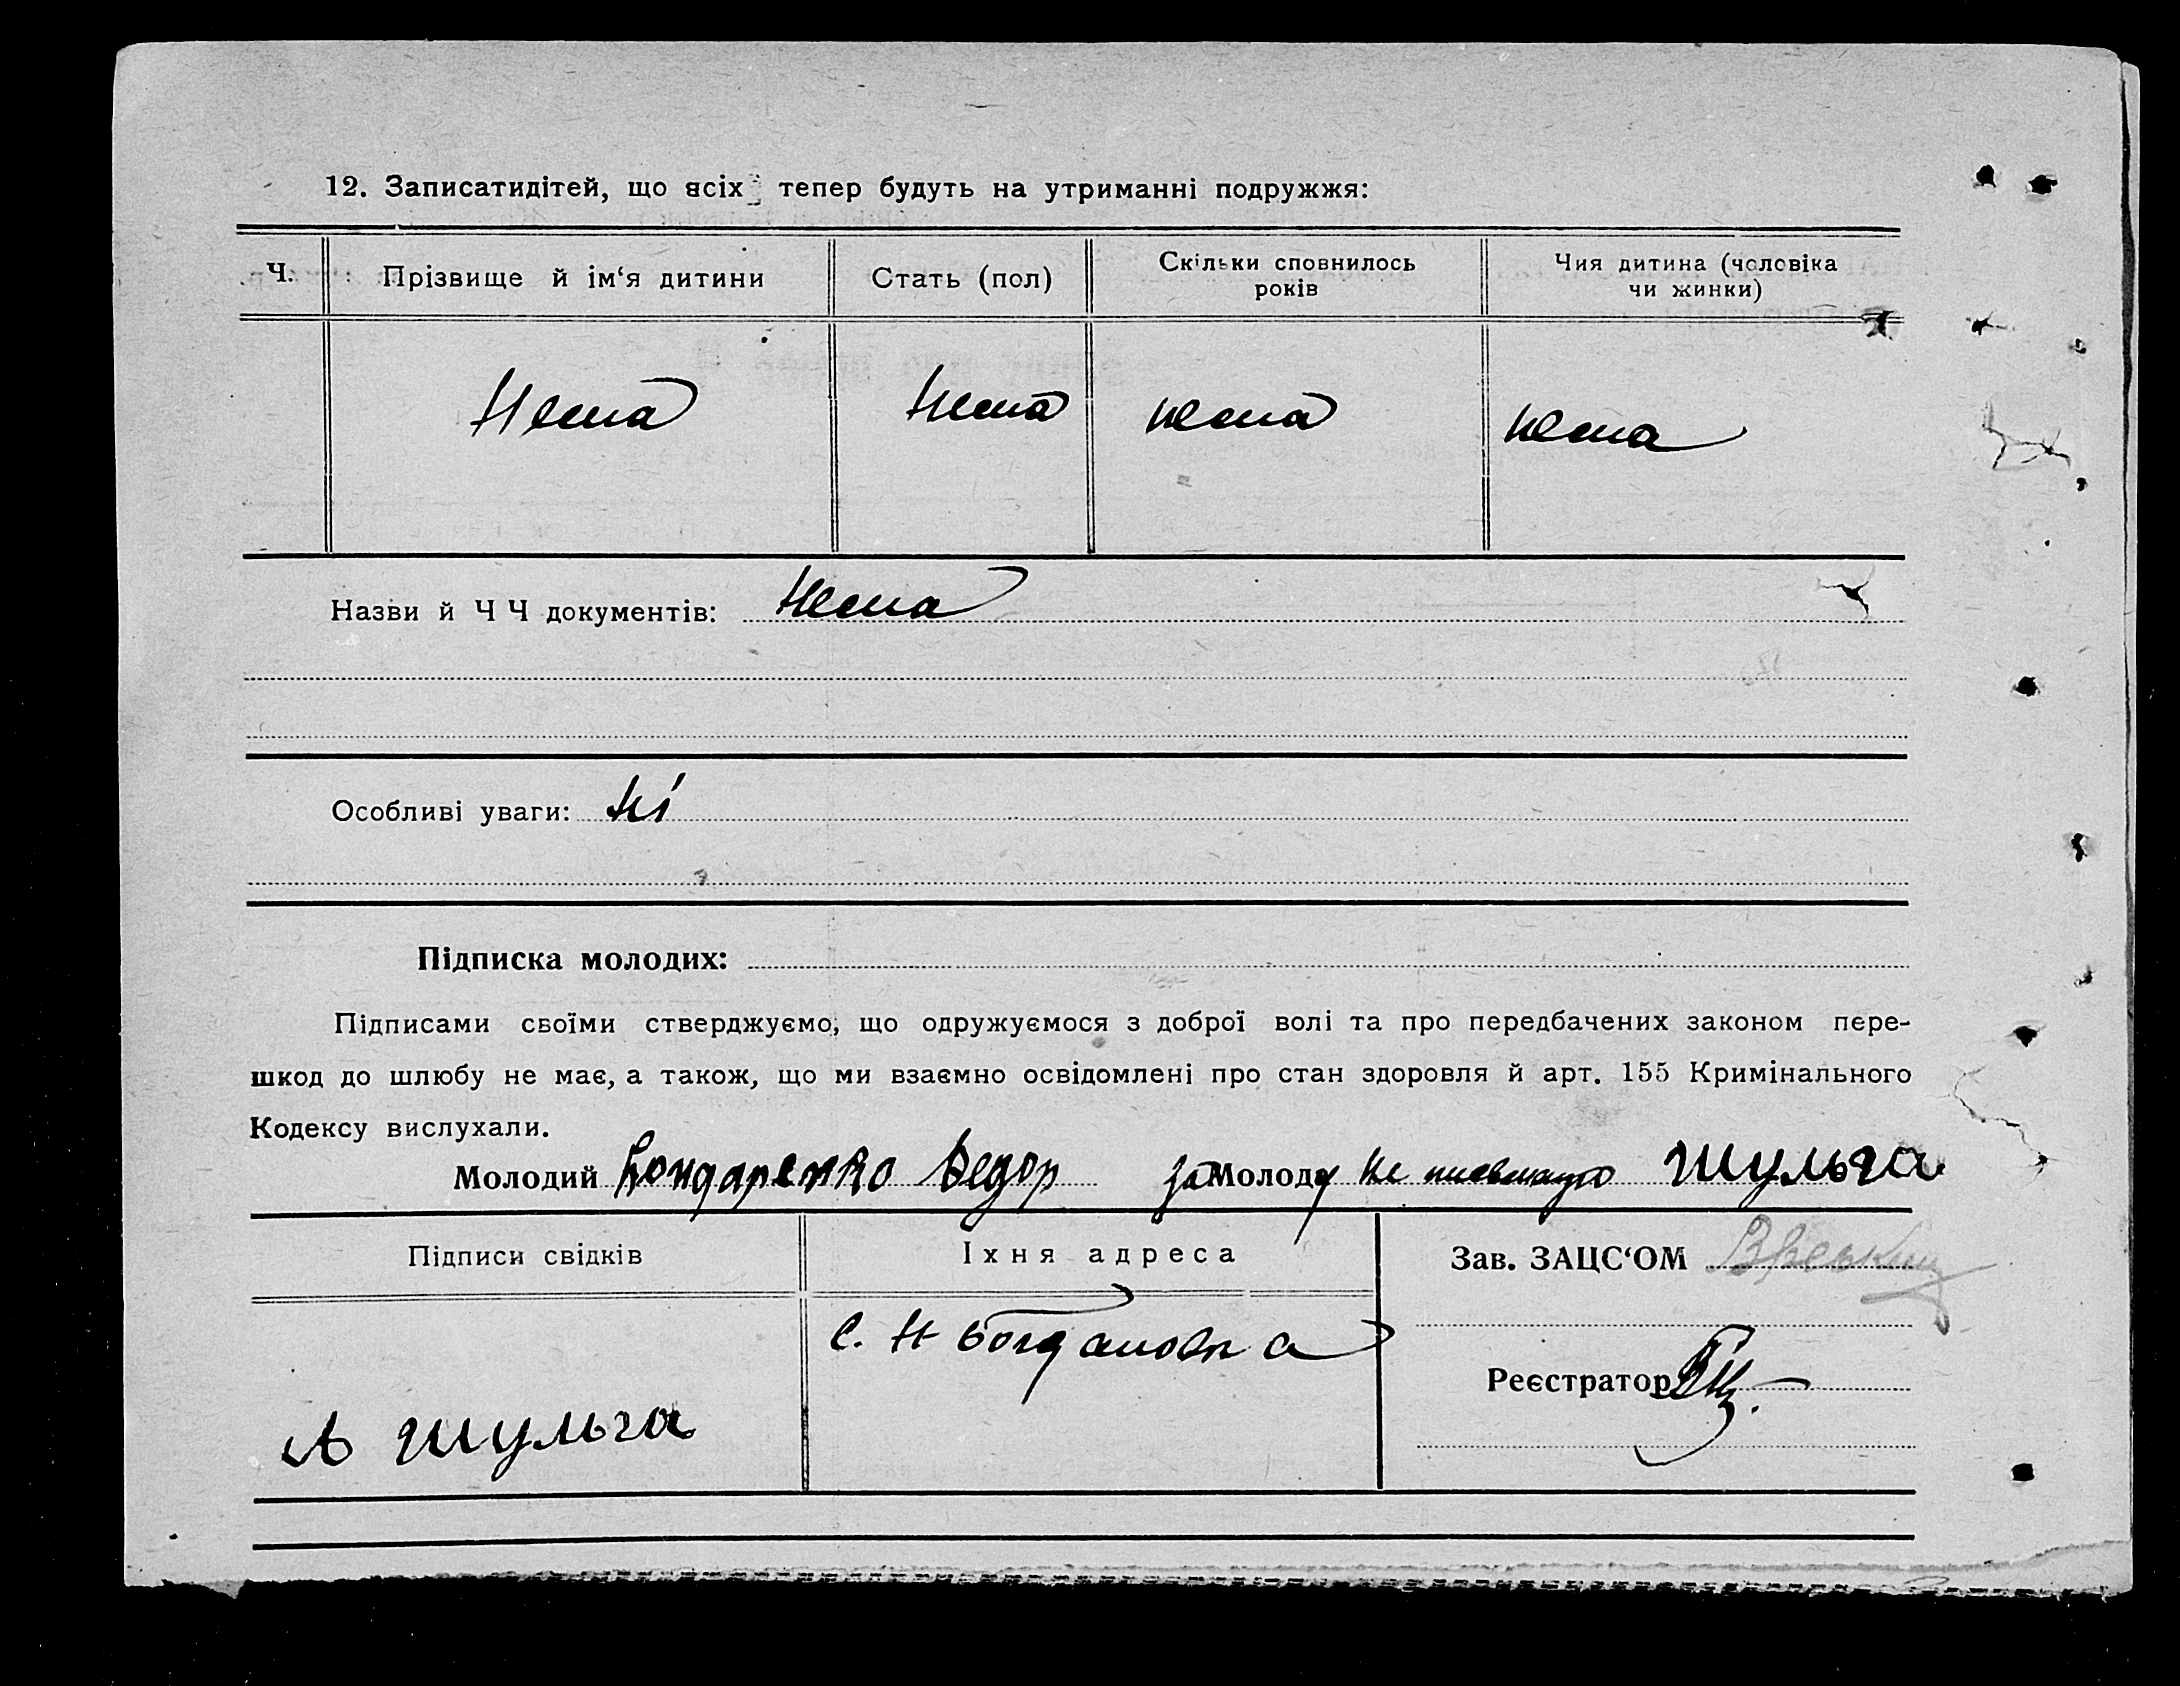 12. Записатидітей, що всіх тепер будуть на утриманні подружжя:
Ч. Прізвище й ім‘я дитини Стать (пол) Скільки сповнилось років Чия дитина (чоловіка чи жинки)
Нема Нема нема нема
Назви й Ч Ч документів: Нема
Особливі уваги: Ні
Підписка молодих:
Підписами своїми стверджуємо, що одружуємося з доброї волі та про передбачених законом пере-
шкод до шлюбу не має, а також, що ми взаємно освідомлені про стан здоровля й арт. 155 Кримінального
Кодексу вислухали.
Молодий Бондаренко Федор за Молоду не письменую Шульга
Підписи свідків Їхня адреса Зав. ЗАЦС‘ОМ
с. Н Богдановка
Реєстратор
А Шульга